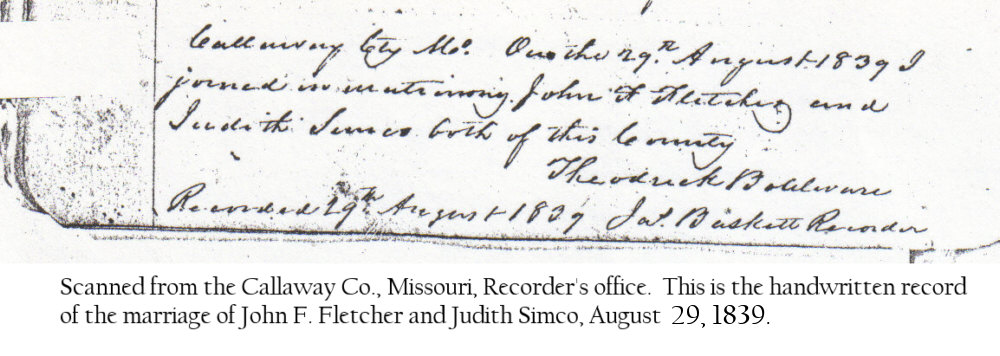 Callaway Cty Mo. On the 29th August 1839 I
joined in matrimony John F Fletcher and
Judith Simco both of this County
Theodrick Boulware
Recorded 29th August 1839 Jas. Baskett Recorder
Scanned from the Callaway Co., Missouri, Recorder's office. This is the handwritten record
of the marriage of John F. Fletcher and Judith Simco, August 29, 1839.